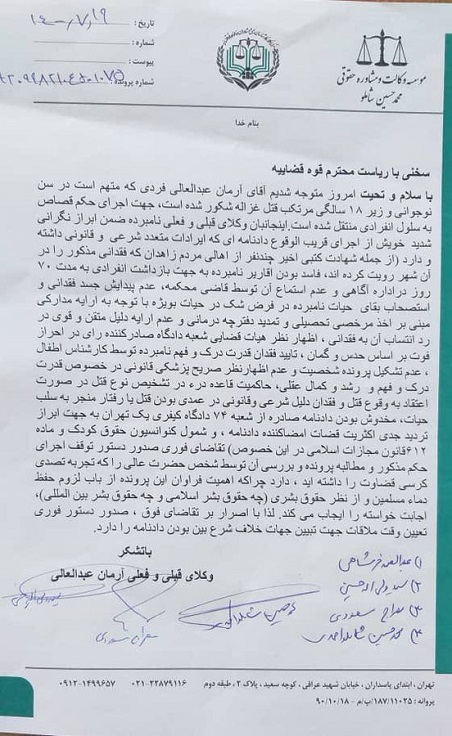 تاریخ : ۱۴۰۰/۷/۱۹
شماره :
پیوست :
شماره پرونده :
موسسه وکالت و مشاوره حقوقی
محمدحسین شاملو
بنام خدا
سخنی با ریاست محترم قوه قضاییه
با سلام و تحیت امروز متوجه شدیم آقای آرمان عبدالعالی فردی که متهم است در سن
نوجوانی و زیر ۱۸ سالگی مرتکب قتل غزاله شکور شده است، جهت اجرای حکم قصاص
به سلول انفرادی منتقل شده است.اینجانبان وکلای قبلی و فعلی نامبرده ضمن ابراز نگرانی
شدید خویش از اجرای قریب الوقوع دادنامه ای که ایرادات متعدد شرعی و قانونی داشته
و دارد (از جمله شهادت کتبی اخیر چندنفر از اهالی مردم زاهدان که فقدانی مذکور را در
آن شهر رویت کرده اند، فاسد بودن اقاریر نامبرده به جهت بازداشت انفرادی به مدت ۷۰
روز دراداره آگاهی و عدم استماع آن توسط قاضی محکمه، عدم پیدایش جسد فقدانی و
استصحاب بقای حیات نامبرده در فرض شک در حیات بویژه با توجه به ارایه مدارکی
مبنی بر اخذ مرخصی تحصیلی و تمدید دفترچه درمانی و عدم ارایه دلیل متقن و قوی در
رد انتساب آن به فقدانی ، اظهار نظر هیات قضایی شعبه دادگاه صادرکننده رای در احراز
فوت بر اساس حدس و گمان ، تایید فقدان قدرت درک و فهم نامبرده توسط کارشناس اطفال
، عدم تشکیل پرونده شخصیت و عدم اظهارنظر صریح پزشکی قانونی در خصوص قدرت
درک و فهم و رشد و کمال عقلی، حاکمیت قاعده درء در تشخیص نوع قتل در صورت
اعتقاد به وقوع قتل و فقدان دلیل شرعی وقانونی در عمدی بودن قتل یا رفتار منجر به سلب
حیات، مخدوش بودن دادنامه صادره از شعبه ۷۴ دادگاه کیفری یک تهران به جهت ابراز
تردید جدی اکثریت قضات امضاکننده دادنامه ، و شمول کنوانسیون حقوق کودک و ماده
۶۱۲قانون مجازات اسلامی در این خصوص) تقاضای فوری صدور دستور توقف اجرای
حکم مذکور و مطالبه پرونده و بررسی آن توسط شخص حضرت عالی را که تجربه تصدی
کرسی قضاوت را داشته اید ، دارد چراکه اهمیت فراوان این پرونده از باب لزوم حفظ
دماء مسلمین و از نظر حقوق بشری (چه حقوق بشر اسلامی و چه حقوق بشر بین المللی)،
اجابت خواسته را ایجاب می کند. لذا با اصرار بر تقاضای فوق ، صدور دستور فوری
تعیین وقت ملاقات جهت تبیین جهات خلاف شرع بین بودن دادنامه را دارد.
باتشکر
وکلای قبلی و فعلی آرمان عبدالعالی
۱) عبدالصمد خرمشاهی
۳) معراج مسعودی
۴) محمدحسین شاملو احمدی
تهران ، ابتدای پاسداران ، خیابان شهید عراقی ، کوچه سعید ، پلاک ۲ ، طبقه دوم ۰۲۱-۲۲۸۷۹۱۱۶ ۰۹۱۲-۱۴۹۹۶۵۷
پروانه : ۱۸۷/۱۱۰۲۵/پ/م - ۹۰/۱۰/۱۸